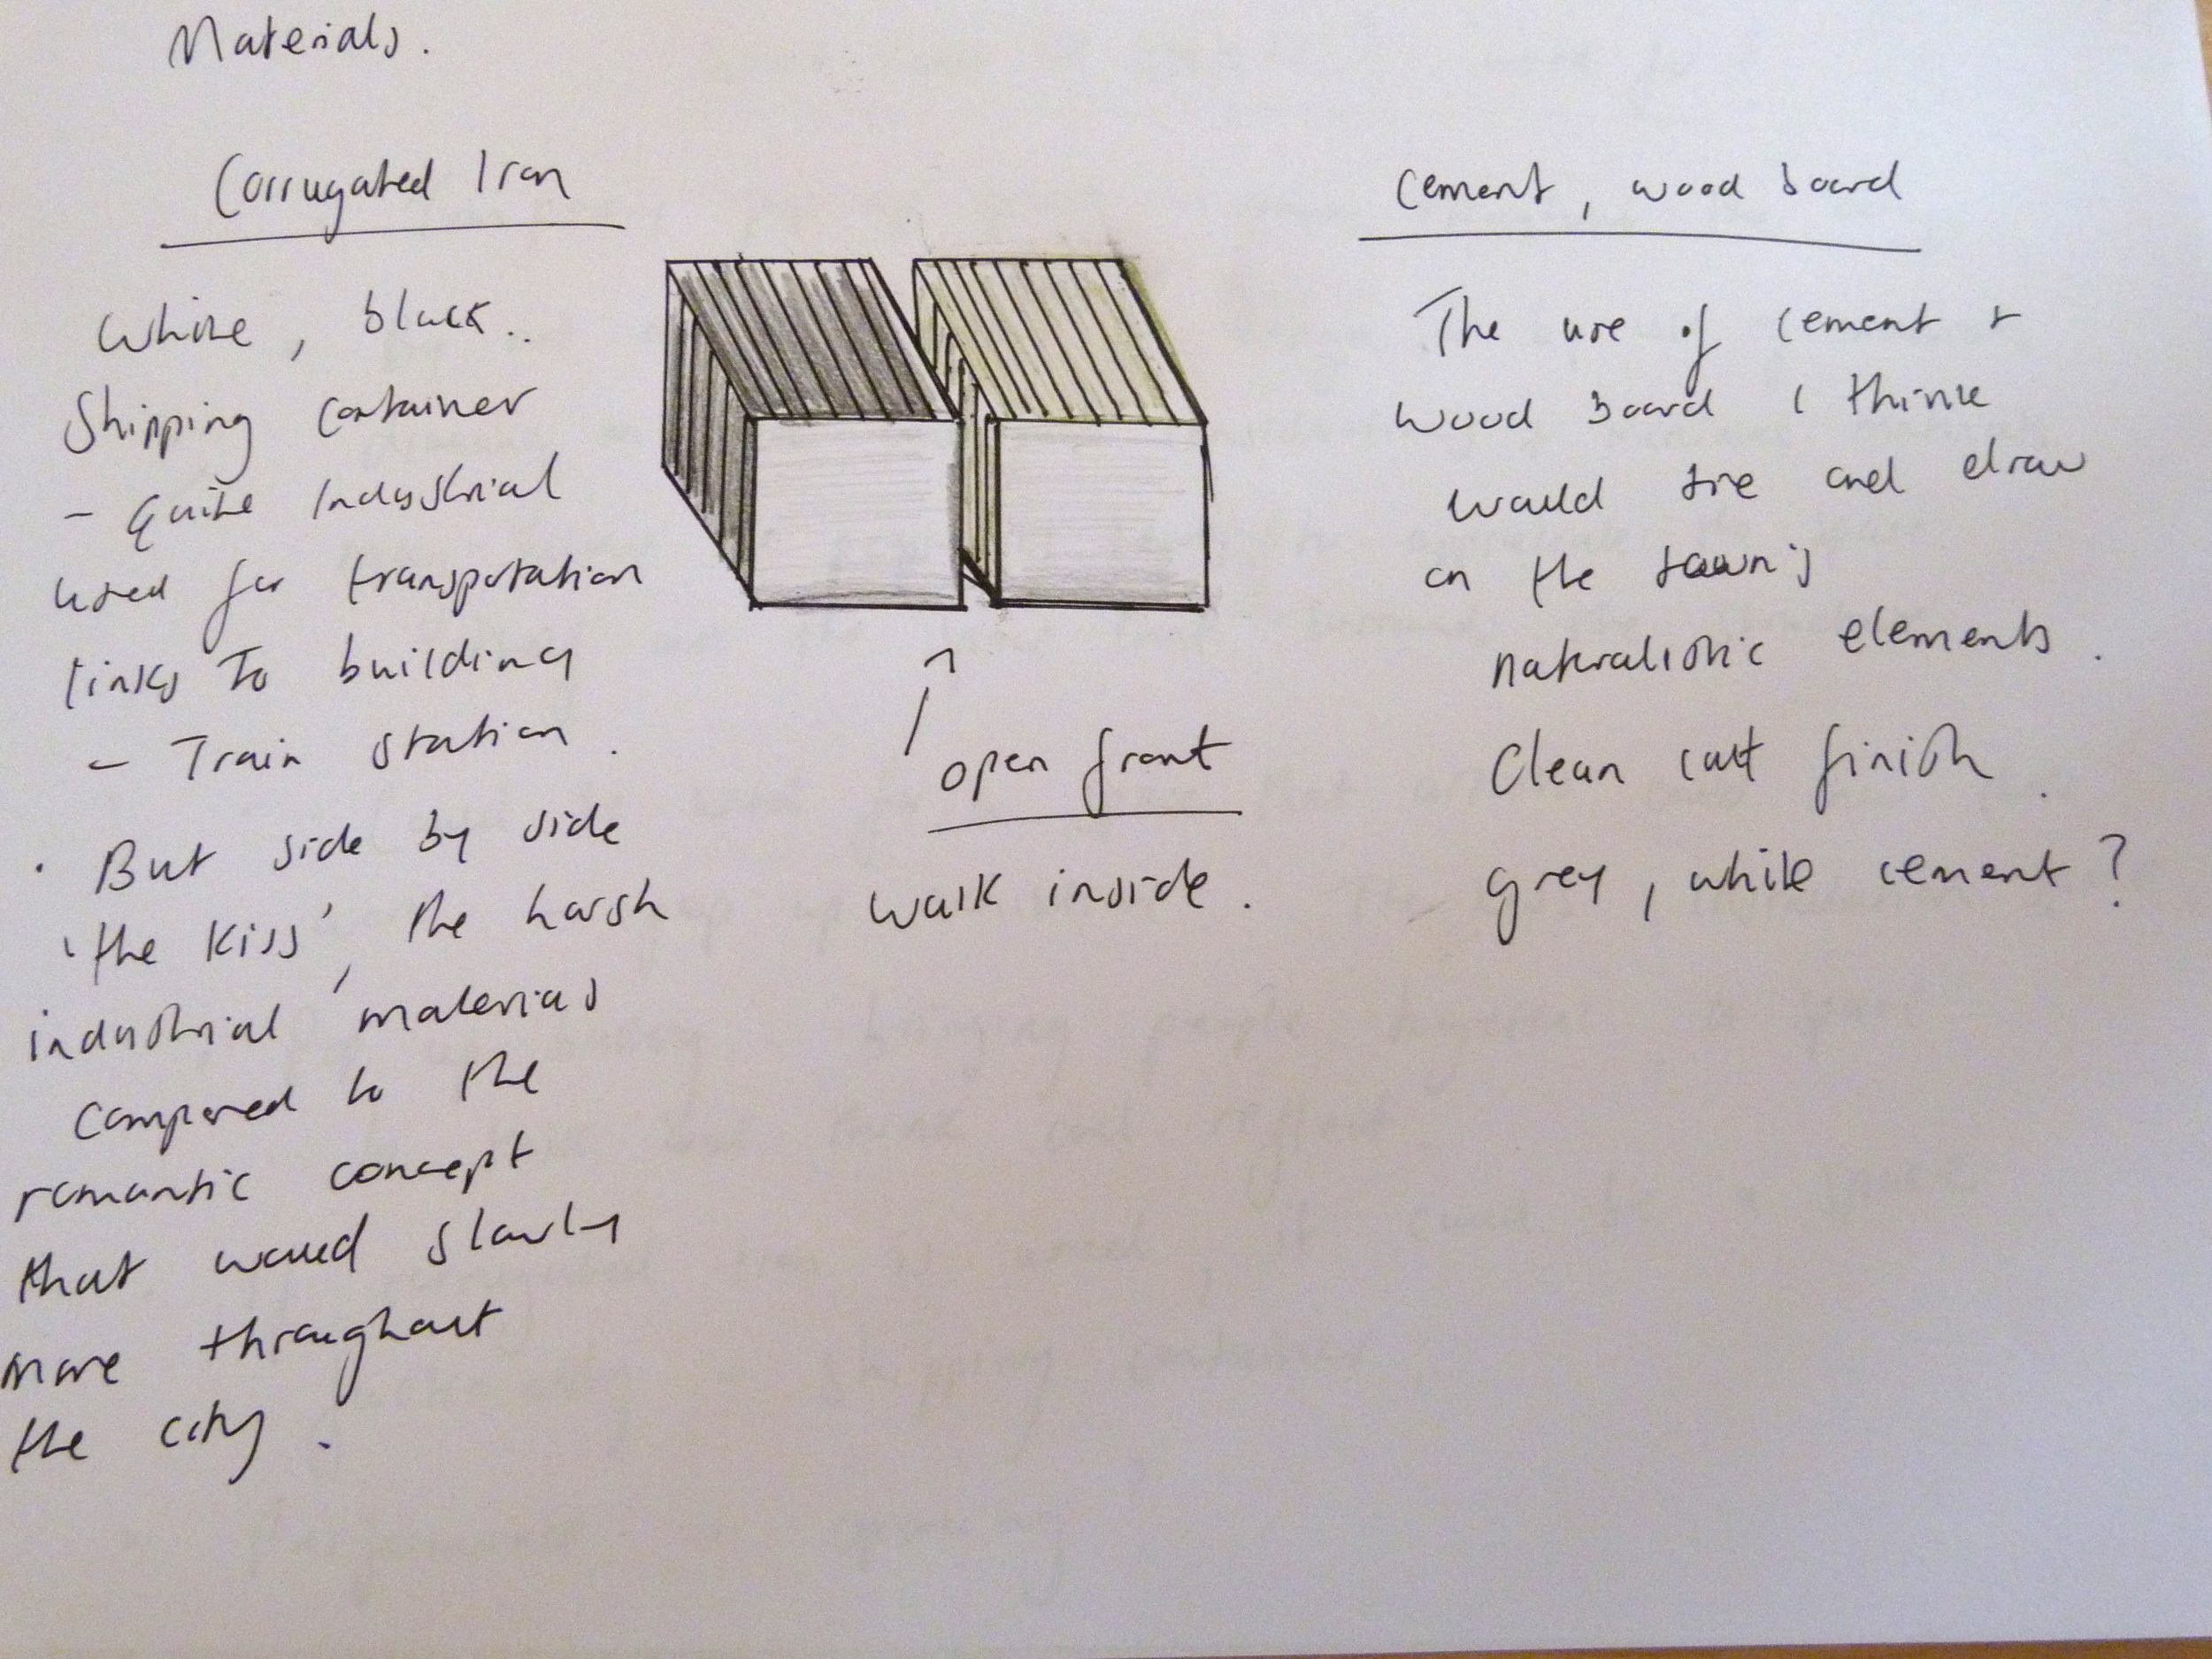 Materials.
Corrugated Iron
White, black..
Shipping container
- Quite Industrial
used for transportation
links To building
- Train station.
· But side by side
'the Kiss', the harsh
industrial materials
compared to the
romantic concept
that would slowly
move throughout
the city.
open front
walk inside.
Cement, wood board
The use of cement +
wood board I think
would tie and draw
on the town's
naturalistic elements.
Clean cut finish.
grey, white cement?